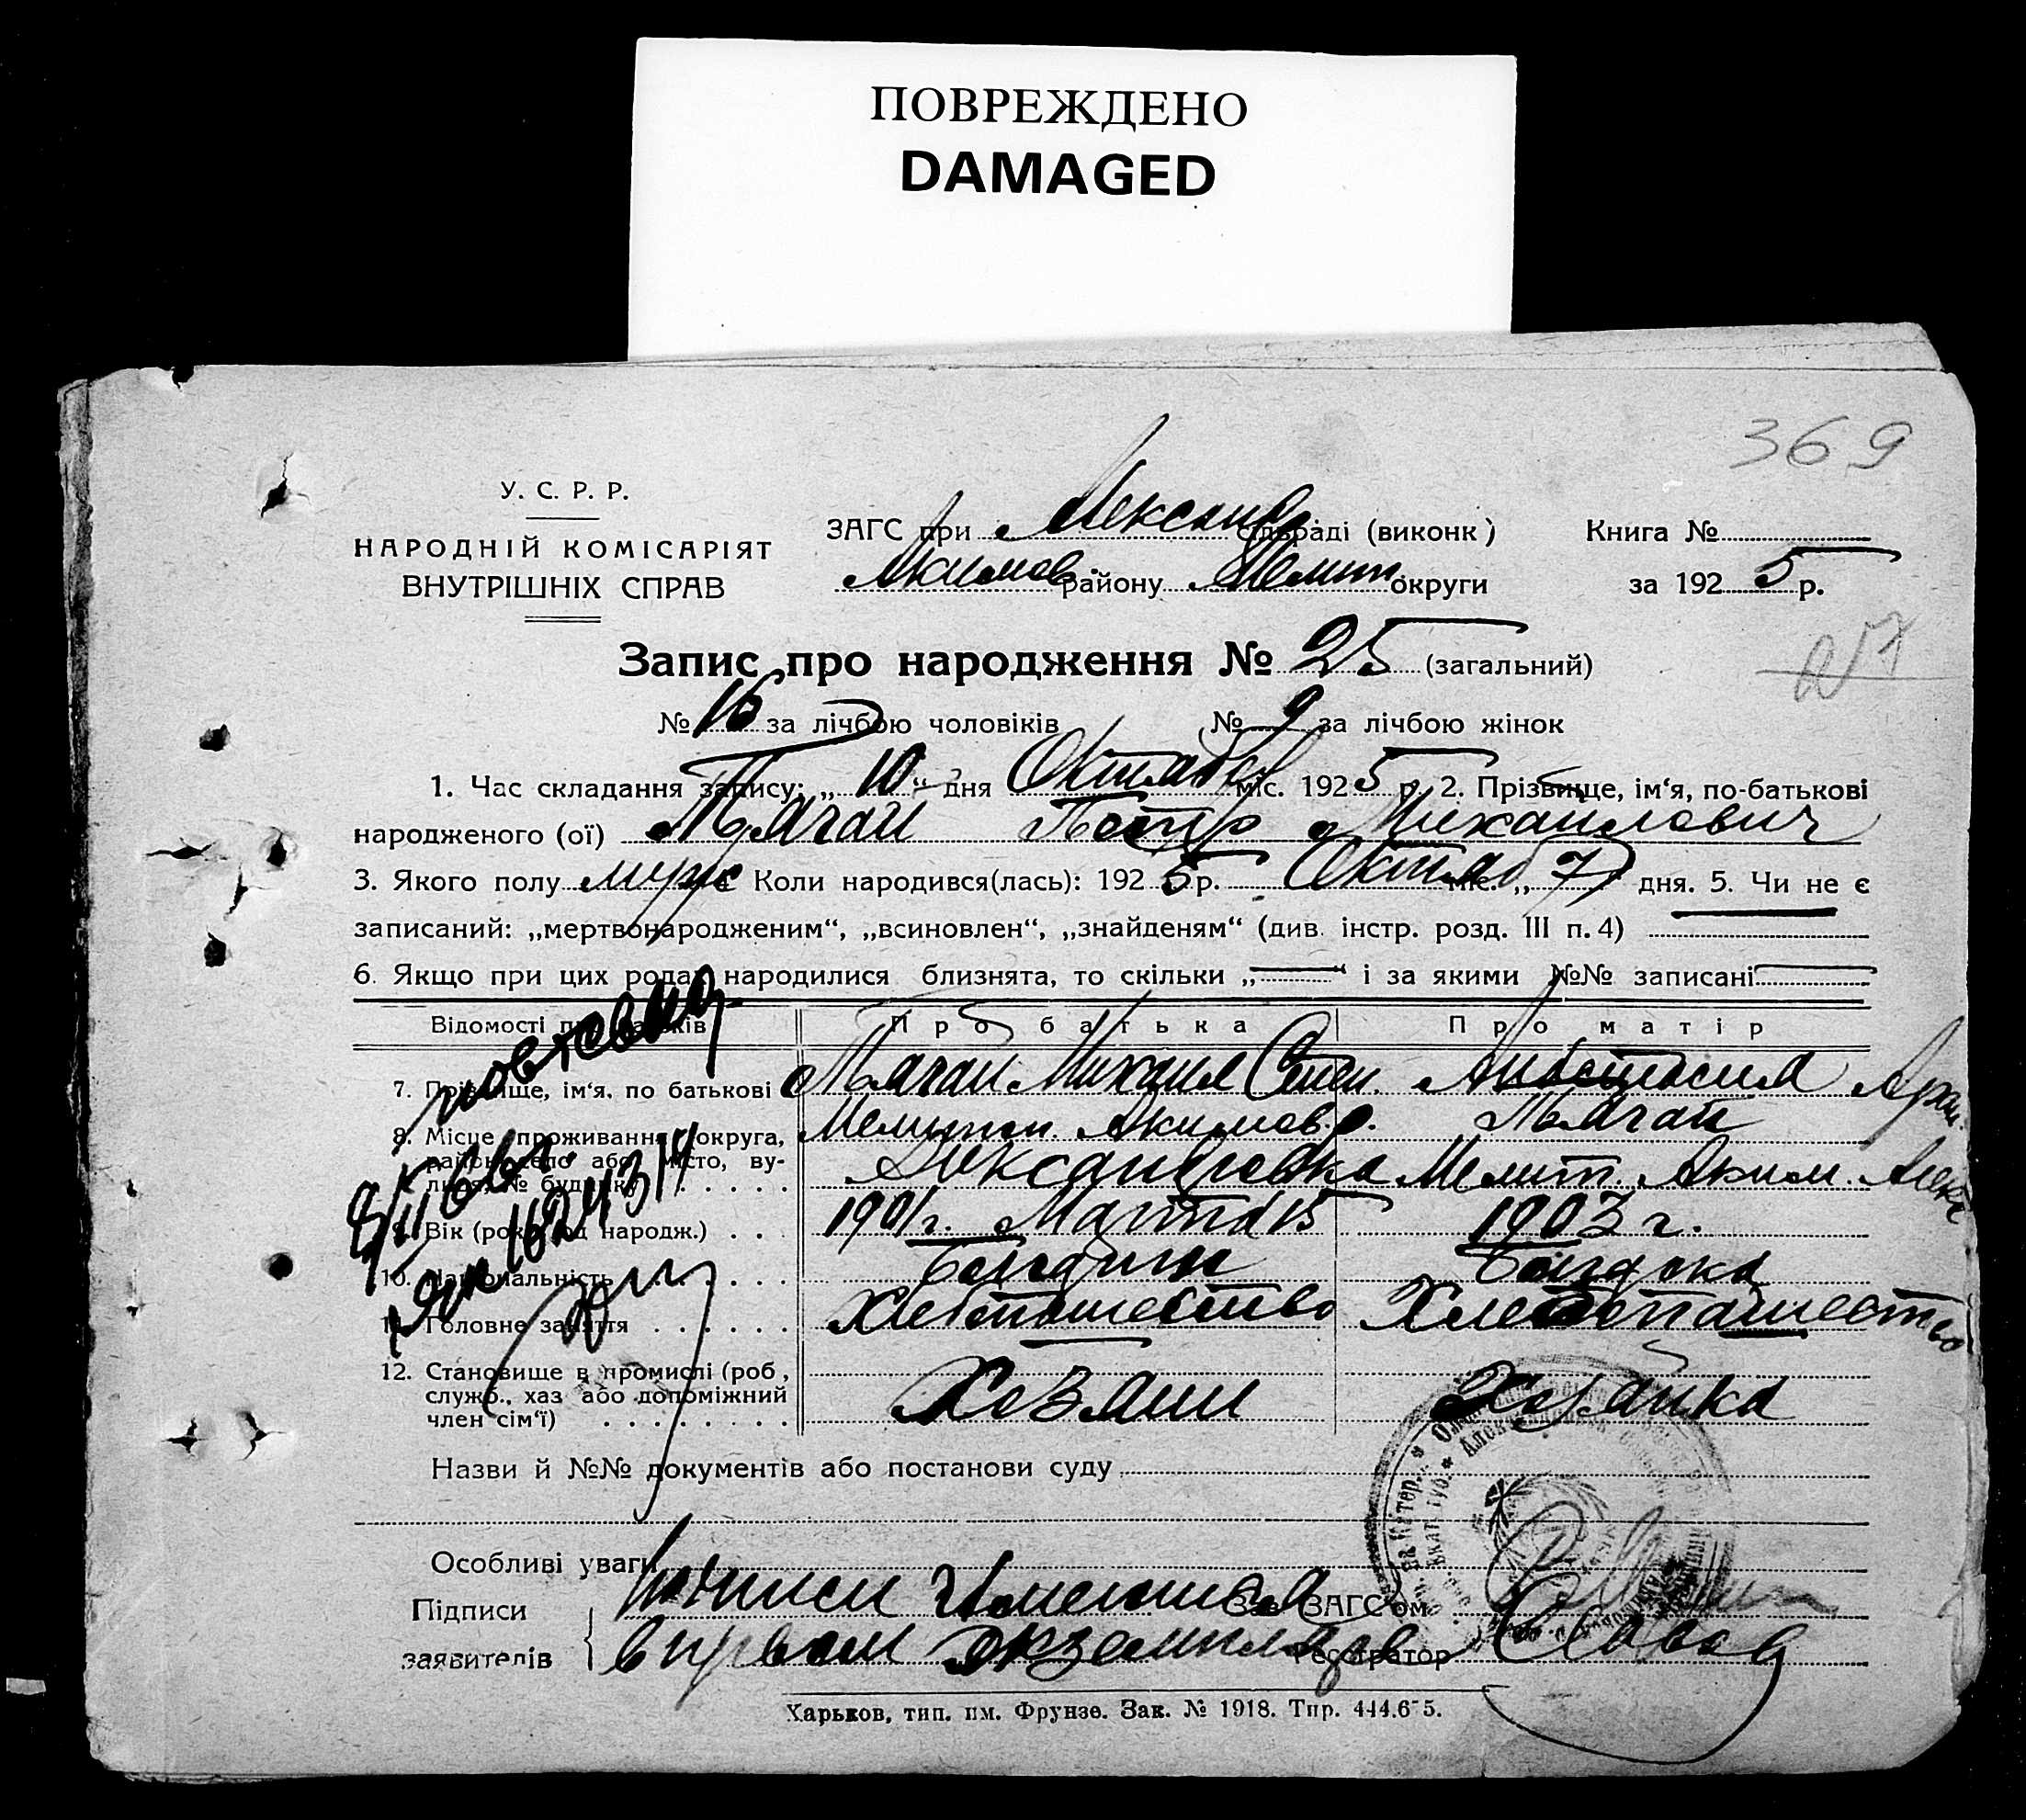 ПОВРЕЖДЕНО
DAMAGED
369
У. С. Р. Р.
НАРОДНІЙ КОМІСАРІЯТ
ВНУТРІШНІХ СПРАВ
ЗАГС при Александ сільраді (виконк)
Акимов. району Мелит. округи
Книга №
за 1925 р.
Запис про народження № 25 (загальний)
№ 16 за лічбою чоловіків № 9 за лічбою жінок
1. Час складання запису: „10“ дня Октября міс. 1925 р. 2. Прізвище, ім‘я, по-батькові
народженого (ої) Пачай Петр Михайлович
3. Якого полу муж 4 Коли народився(лась): 1925 р. Октяб міс. „7“ дня. 5. Чи не є
записаний: „мертвонародженим“, „всиновлен“, „знайденям“ (див. інстр. розд. III п. 4)
6. Якщо при цих родах народилися близнята, то скільки „ “ і за якими №№ записані
Відомості про батьків Про батька Про матір
7. Прізвище, ім‘я, по батькові Пачай Михаил Степ. Анастасия
Пачай
8. Місце проживання (округа, Мелитоп. Акимов. р.
район, село або місто, ву-
лиця, № будинку) Александровка Мелит. Аким. Алекс
9. Вік (рока од народж.) 1901 г. Марта 15 1903 г.
10. Національність Болгарин Болгарка
11. Головне заняття Хлебопашество Хлебопашество
12. Становище в промислі (роб,
служб., хаз або допоміжний
член сім‘ї) Хозяин Хозяйка
Назви й №№ документів або постанови суду
Особливі уваги
Підписи
заявителів
Подписи имеются
в первом экземпляре
Зав. ЗАГС‘ом
Реєстратор
Харьков, тип. им. Фрунзе. Зак. № 1918. Тир. 444.675.